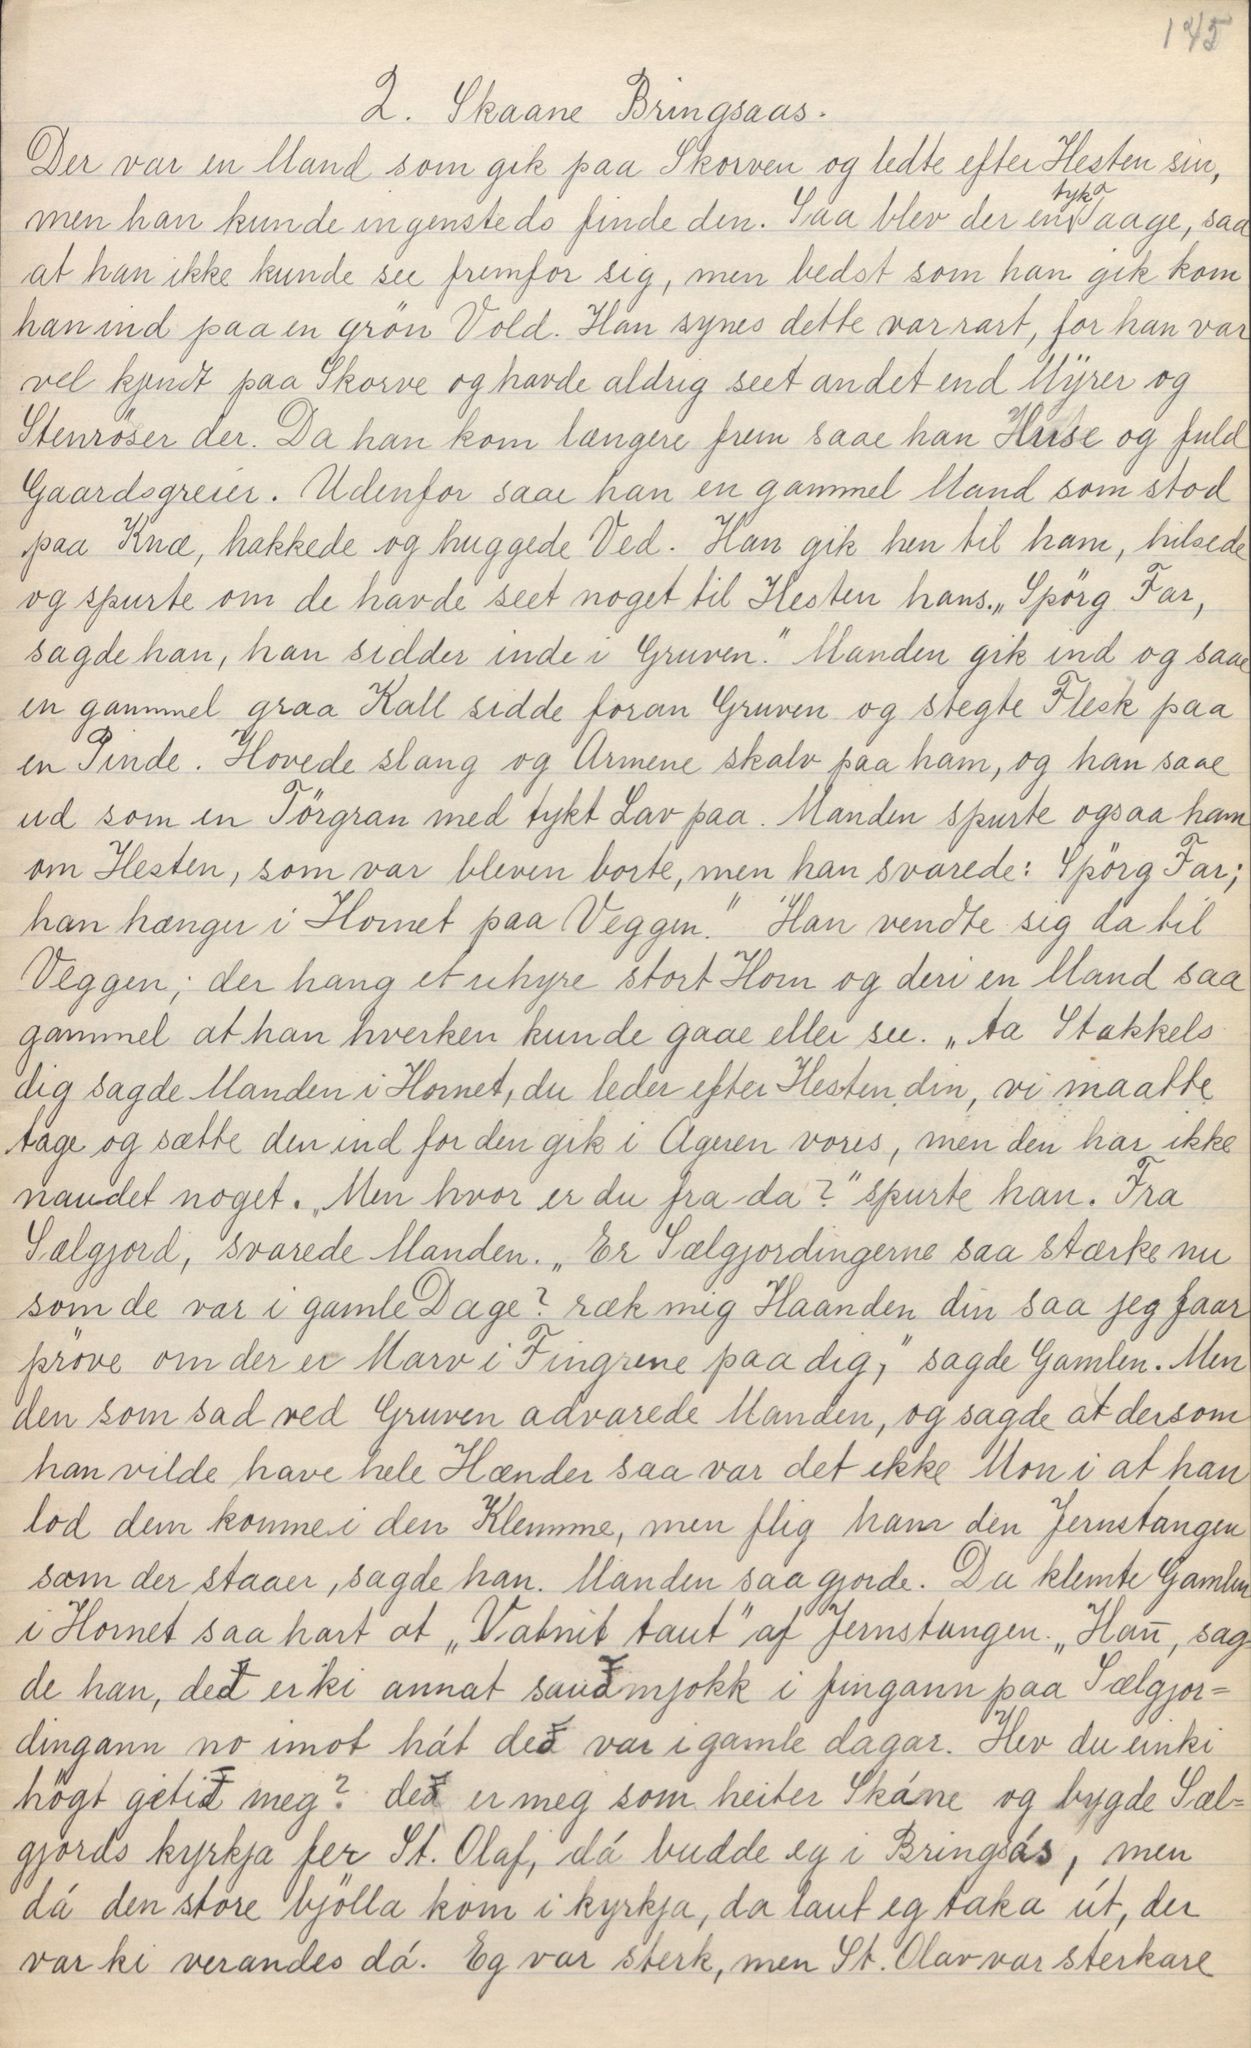 145
2. Skaane Bringsaas.
Der var en Mand som gik paa Skorven og ledte efter Hesten sin,
men han kunde ingensteds finde den. Saa blev der en tyk Taage, saa
at han ikke kunde see fremfor sig, men bedst som han gik kom
han ind paa en grön Vold. Han synes dette var rart, for han var
vel kjendt paa Skorve og havde aldrig seet andet end Myrer og
Stenröser der. Da han kom længere frem saae han Huse og fuld
Gaardsgreier. Udenfor saae han en gammel Mand som stod
paa Knæ, hakkede og huggede Ved. Han gik hen til ham, hilsede
og spurte om de havde seet noget til Hesten hans. „Spörg Far,
sagde han, han sidder inde i Gruven." Manden gik ind og saae
en gammel graa Kall sidde foran Gruven og stegte Flesk paa
en Pinde. Hovede slang og Armene skalv paa ham, og han saae
ud som en Törgran med tykt Lav paa. Manden spurte ogsaa ham
om Hesten, som var bleven borte, men han svarede: Spörg Far;
han hænger i Hornet paa Veggen." Han vendte sig da til
Veggen; der hang et uhyre stort Horn og deri en Mand saa
gammel at han hverken kunde gaae eller see. „Aa Stakkels
dig sagde Manden i Hornet, du leder efter Hesten din, vi maatte
tage og sætte den ind for den gik i Ageren vores, men den har ikke
naudet noget. „Men hvor er du fra da?" spurte han. Fra
Sælgjord, svarede Manden. „Er Sælgjordingerne saa stærke nu
som de var i gamle Dage? ræk mig Haanden din saa jeg faar
pröve om der er Marv i Fingrene paa dig," sagde Gamlen. Men
den som sad ved Gruven advarede Manden, og sagde at dersom
han vilde have hele Hænder saa var det ikke Mon i at han
lod dem komme i den Klemme, men flig ham den Jernstangen
som der staaer, sagde han. Manden saa gjorde. Da klemte Gamlen
i Hornet saa hart at „Vatnit taut" af Jernstangen. „Han̄, sag-
de han, deđ er ki annat sauđmjokk i fingann paa Sælgjor=
dingann no imot hát deđ var i gamle dagar. Hev du einki
högt getiđ meg? deđ er meg som heiter Skáne og bygde Sæl=
gjords kyrkja fer St. Olaf, dá budde eg i Bringsás, men
dá den store bjölla kom i kyrkja, da laut eg taka út, der
var ki verandes dá. Eg var sterk, men St. Olav var sterkare